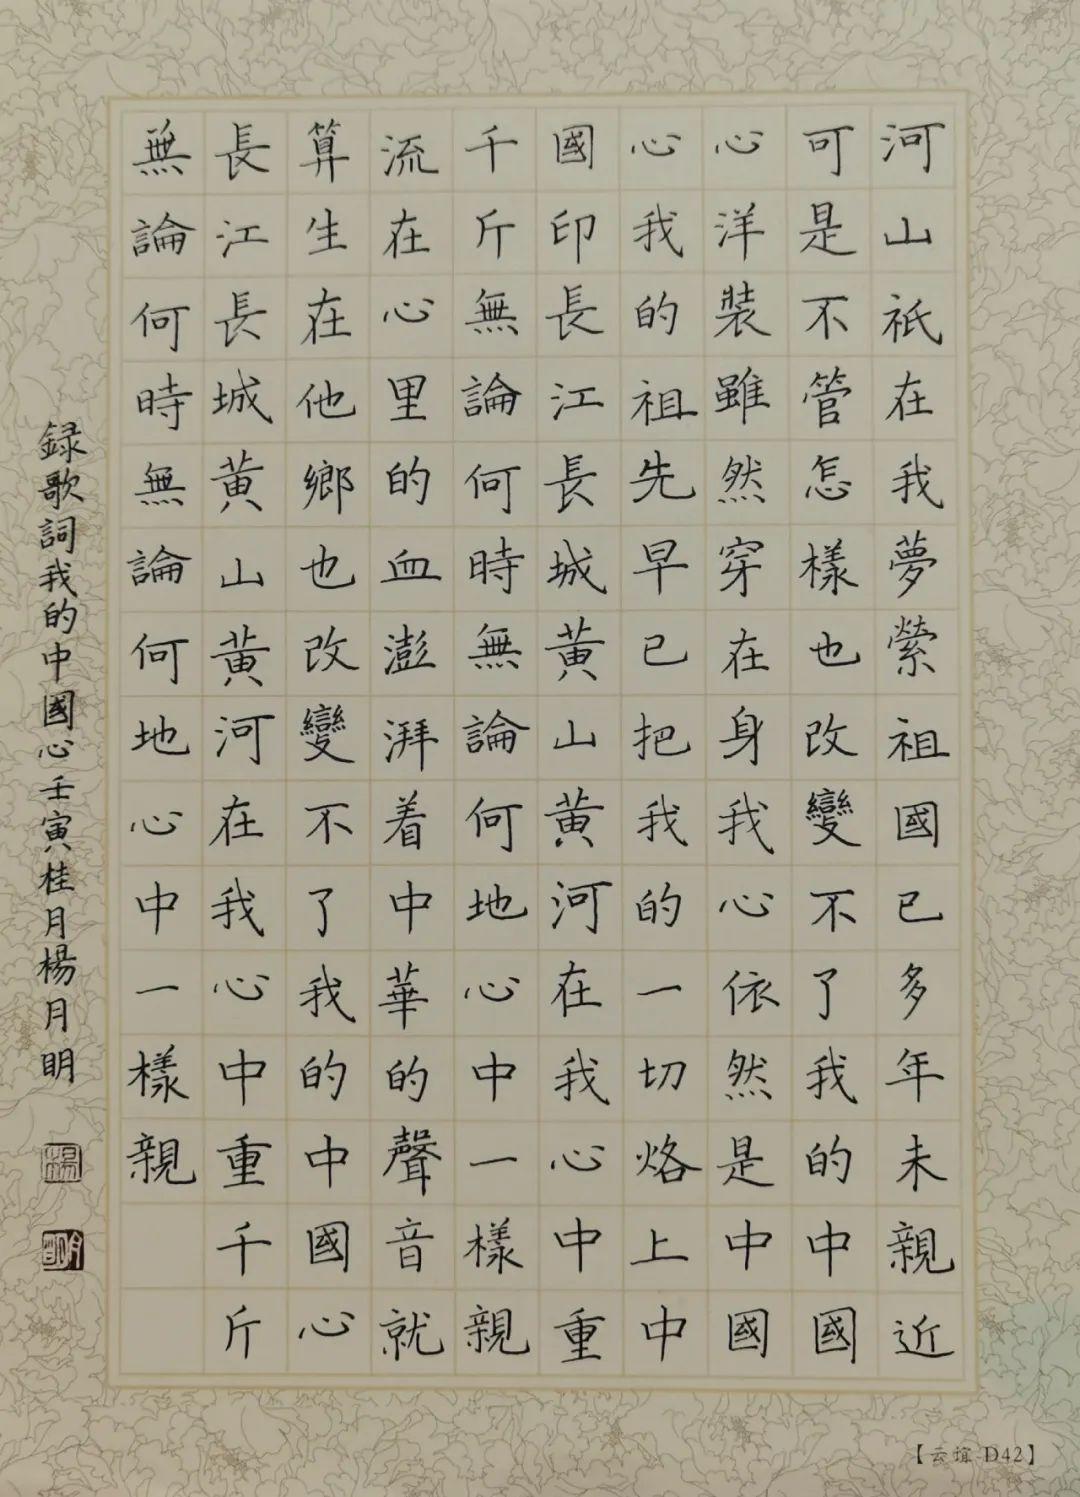 河山祇在我夢縈祖國已多年未親近
可是不管怎樣也改變不了我的中國
心洋裝雖然穿在身我心依然是中國
心我的祖先早已把我的一切烙上中
國印長江長城黃山黃河在我心中重
千斤無論何時無論何地心中一樣親
流在心里的血澎湃着中華的聲音就
算生在他鄉也改變不了我的中國心
長江長城黃山黃河在我心中重千斤
無論何時無論何地心中一樣親
録歌詞我的中國心壬寅桂月楊月明
楊
明
【云谊 D42】